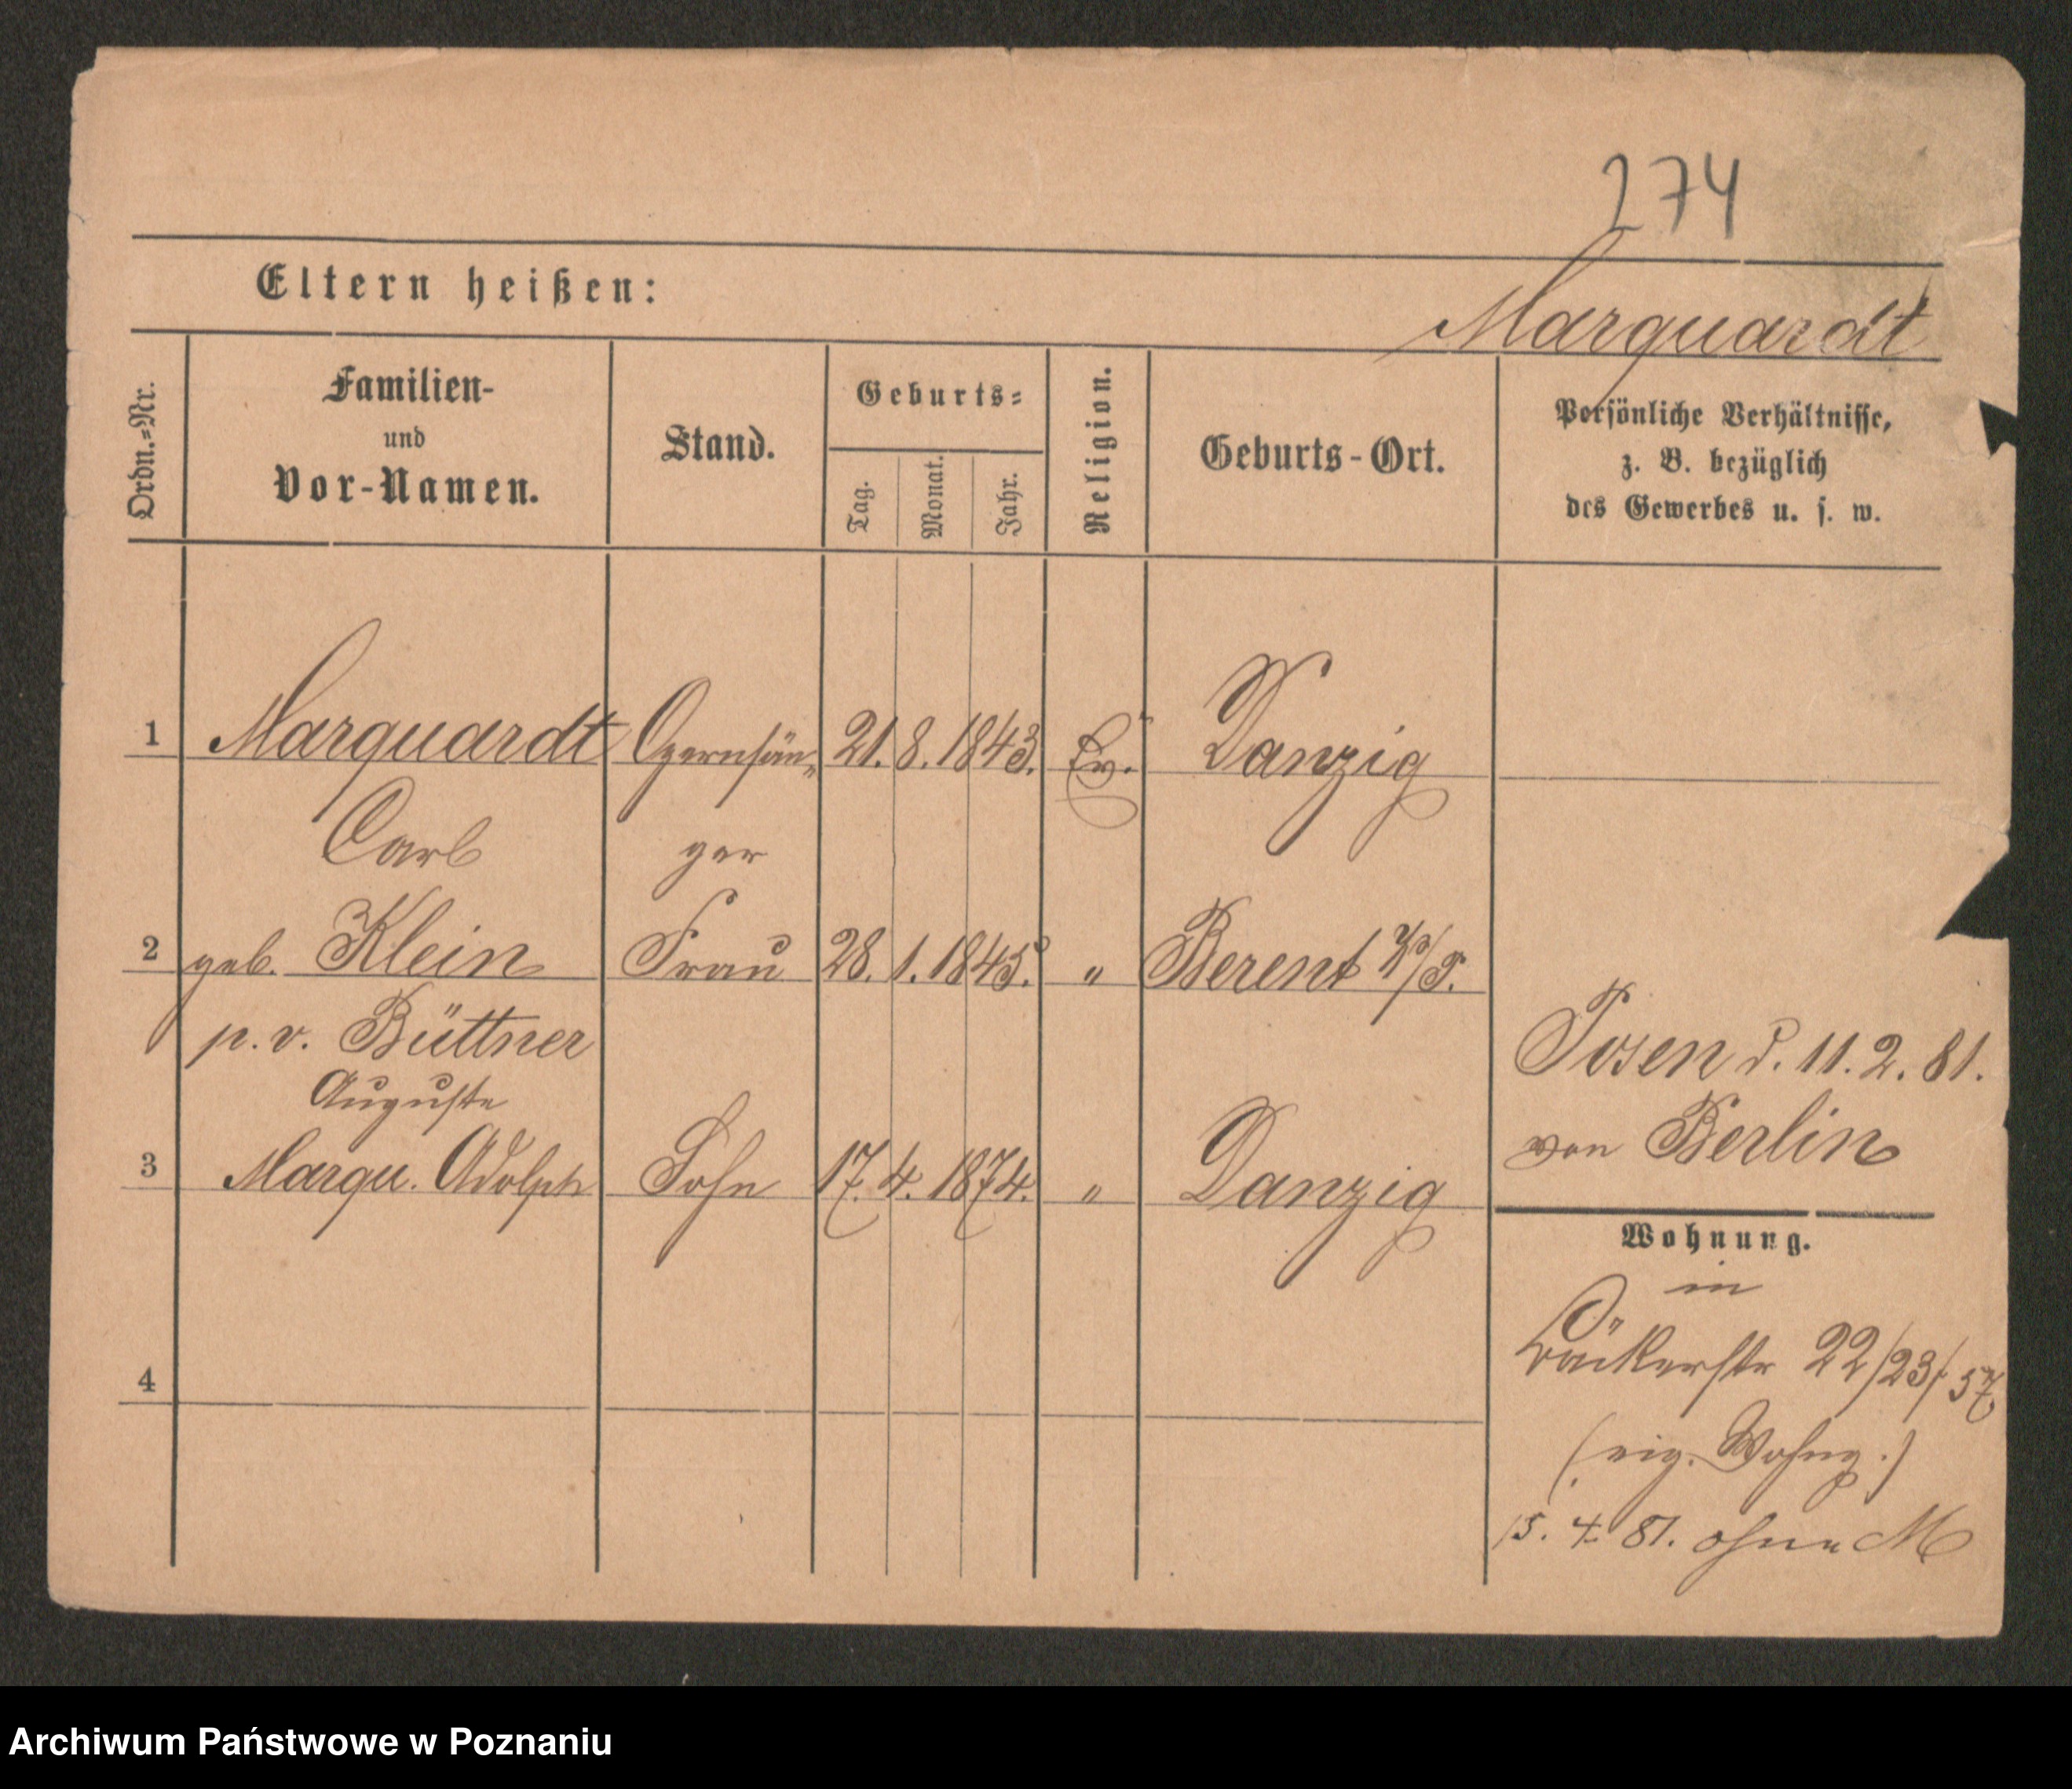 274
Eltern heißen:
Marquardt
Ordn.=Nr.
Familien-
und
Vor-Namen.
Stand.
Geburts=
Tag.
Monat.
Jahr.
Religion.
Geburts-Ort.
Persönliche Verhältnisse,
z. B. bezüglich
des Gewerbes u. s. w.
1 Marquardt Opernsän= 21. 8. 1843. Ev. Danzig
Carl ger
2 geb. Klein Frau 28. 1. 1845. " Berent
p. v. Büttner
Auguste
3 Margu. Adolph Sohn 17. 4. 1874. " Danzig
4
Posen d. 11. 2. 81.
von Berlin
Wohnung.
in
Bäckerstr 22/23/57
(eig. Wohng.)
15. 4. 81. ohne M
Archiwum Państwowe w Poznaniu